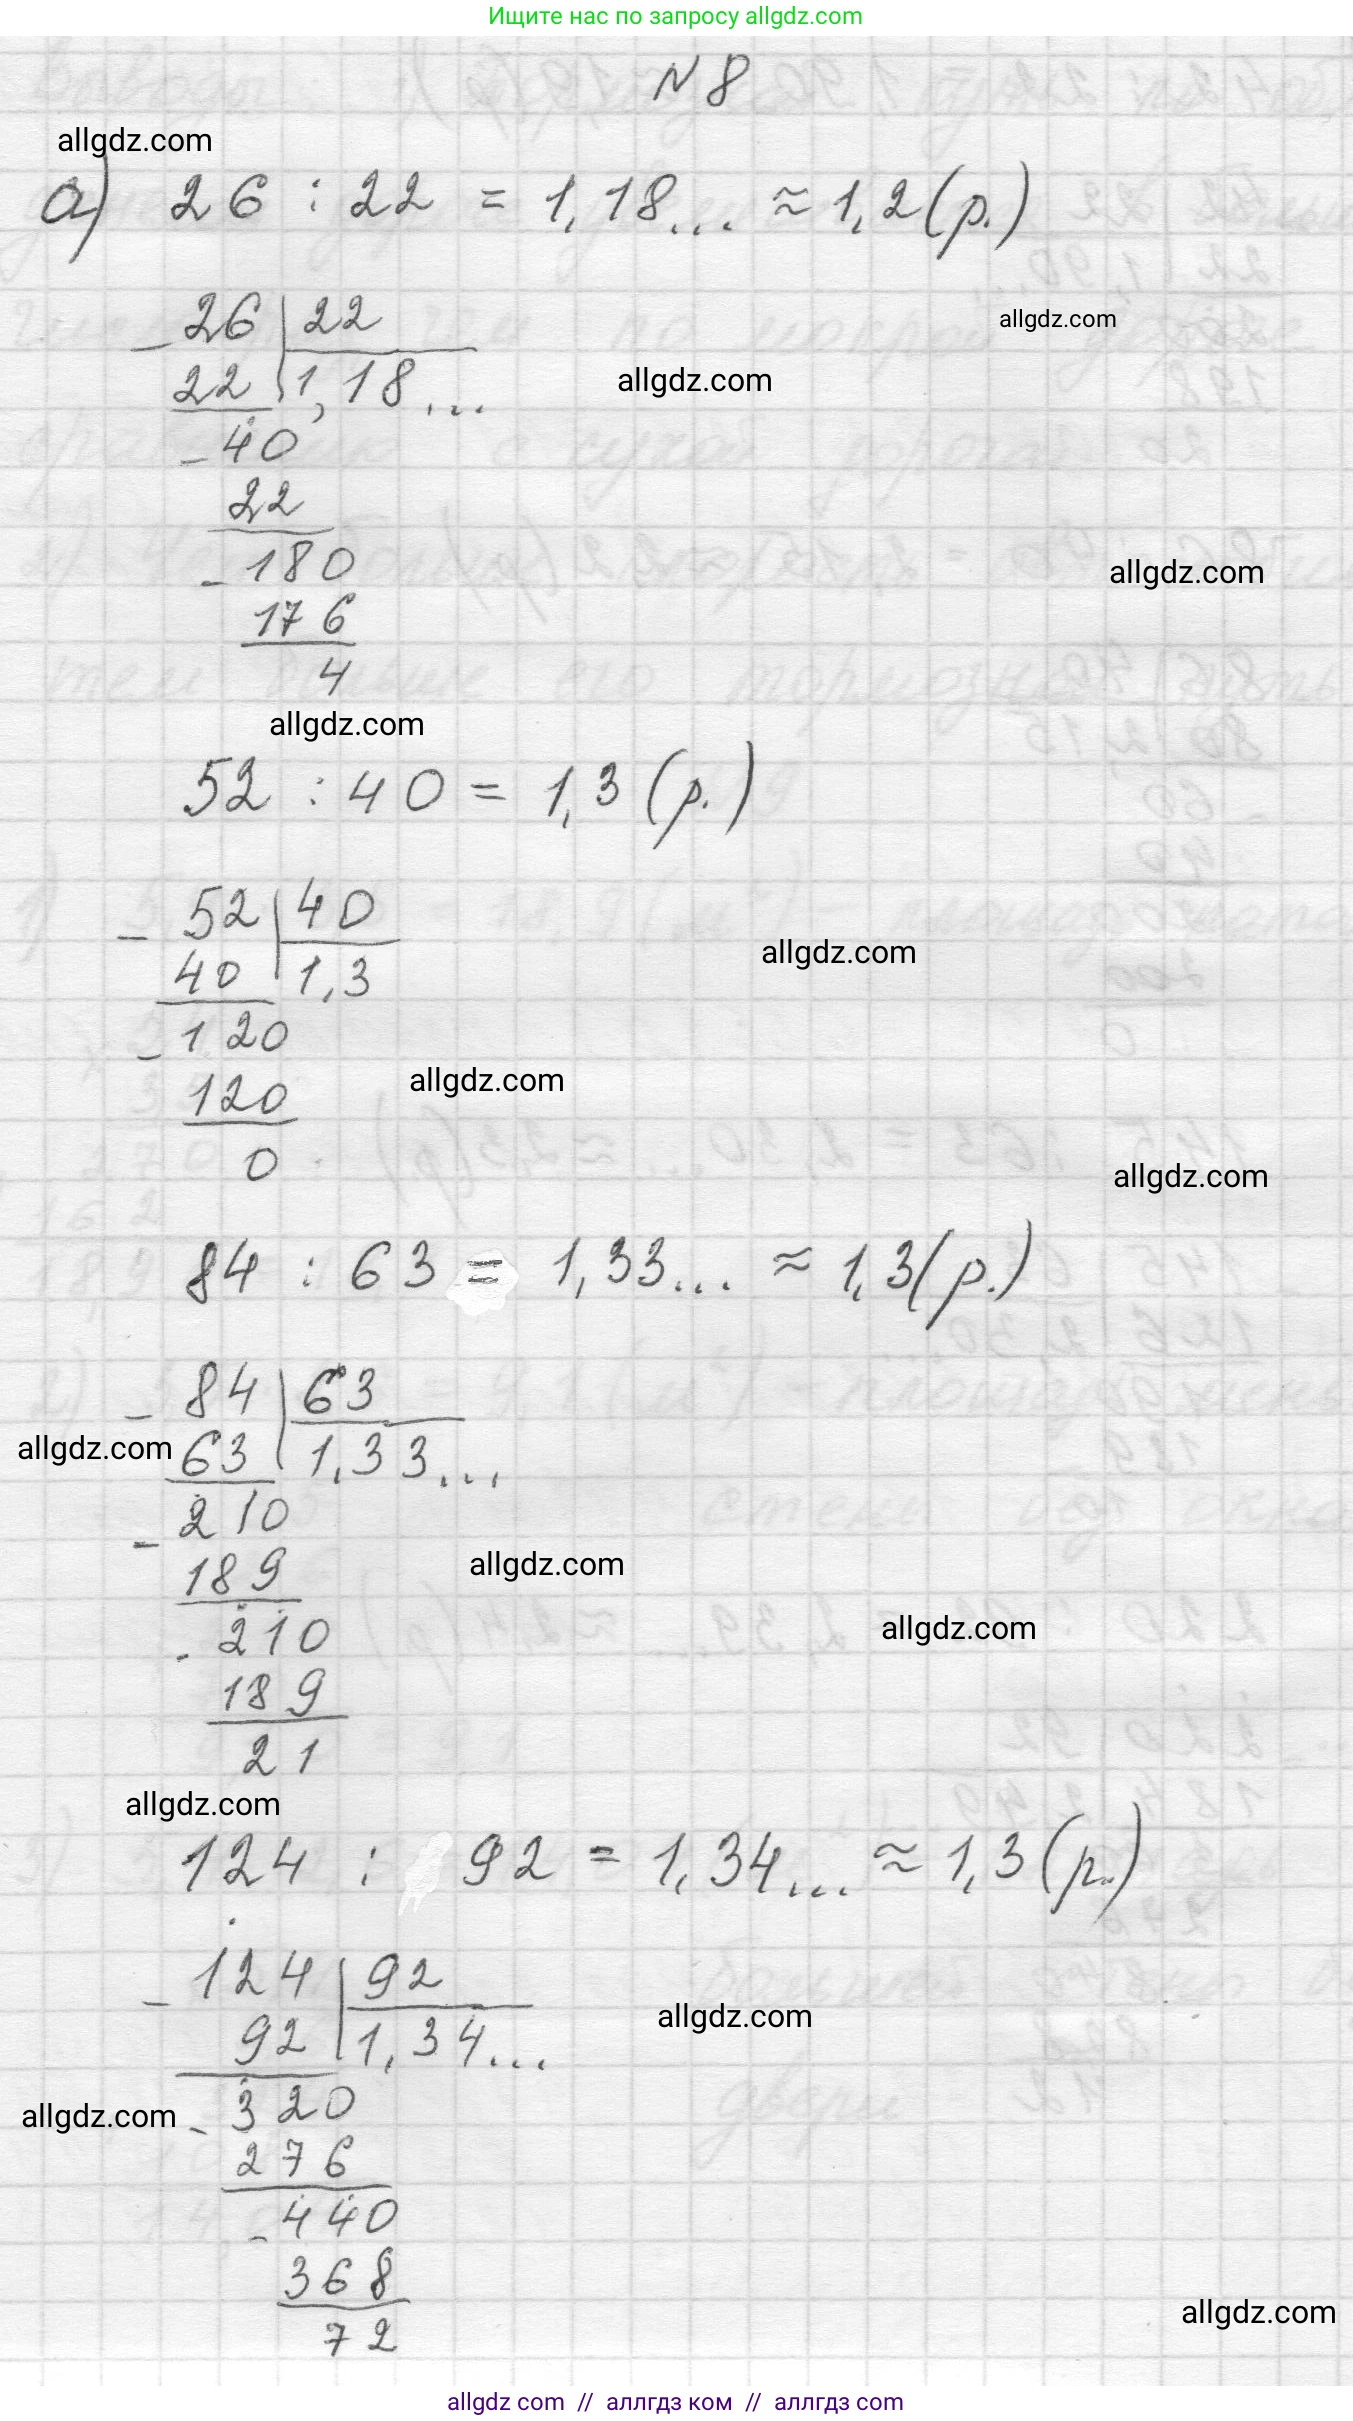 Ищите нас по запросу allgdz.com
N 8
allgdz.com
а) 26 : 22 = 1,18... ≈ 1,2 (р.)
allgdz.com
- 26 | 22
22 | 1,18...
allgdz.com
- 40
22
- 180
allgdz.com
176
4
allgdz.com
52 : 40 = 1,3 (р.)
- 52 | 40
40 | 1,3
allgdz.com
- 120
120
allgdz.com
0
allgdz.com
84 : 63 = 1,33... ≈ 1,3 (р.)
- 84 | 63
63 | 1,33...
allgdz.com
- 210
189
allgdz.com
- 210
allgdz.com
189
21
allgdz.com
124 : 92 = 1,34... ≈ 1,3 (р.)
- 124 | 92
92 | 1,34...
allgdz.com
- 320
allgdz.com
276
- 440
368
allgdz.com
72
allgdz com // аллгдз ком // аллгдз com